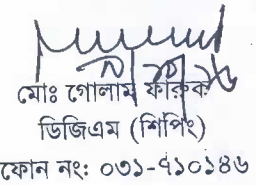 মোঃ গোলাম ফারুক
ডিজিএম (শিপিং)
ফোন নং: ০৩১-৭১০১৪৬